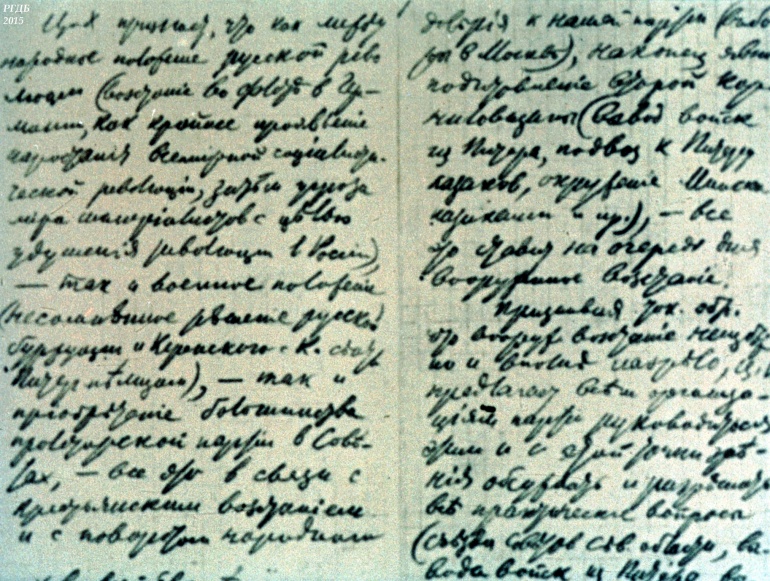 РГДБ
2015
ЦК признает, что как между
народное положение русской рево
люции (восстание во флоте в Гер-
мании, как крайнее проявление
нарастания всемирной социалисти-
ческой революціи, затем угроза
міра империалистов с целью
удушенія революции в России),
— так и военное положение
(несомненное решение русской
буржуазии и Керенского с К° сдать
Питер немцам), — так и
приобретение большинства
пролетарской партіи в Сове-
тах, — все это в связи с
крестьянским восстанием
и с поворотом народного
доверія к нашей партіи (выбо
ры в Москве), наконец явное
подготовление второй кор-
ниловщины (вывод войск
из Питера, подвоз к Питеру
казаков, окружение Минска
казаками и пр.), — все
это ставит на очередь дня
вооруженное восстание.
Признавая так. обр.
что вооруж восстание неизбеж
но и вполне назрело, ЦК
предлагает всем организа-
циям партіи руководиться
этим и с этой точки зре-
нія обсуждать и разрешать
все практические вопросы
(съезда советов сев. области, вы-
вода войск из Питера